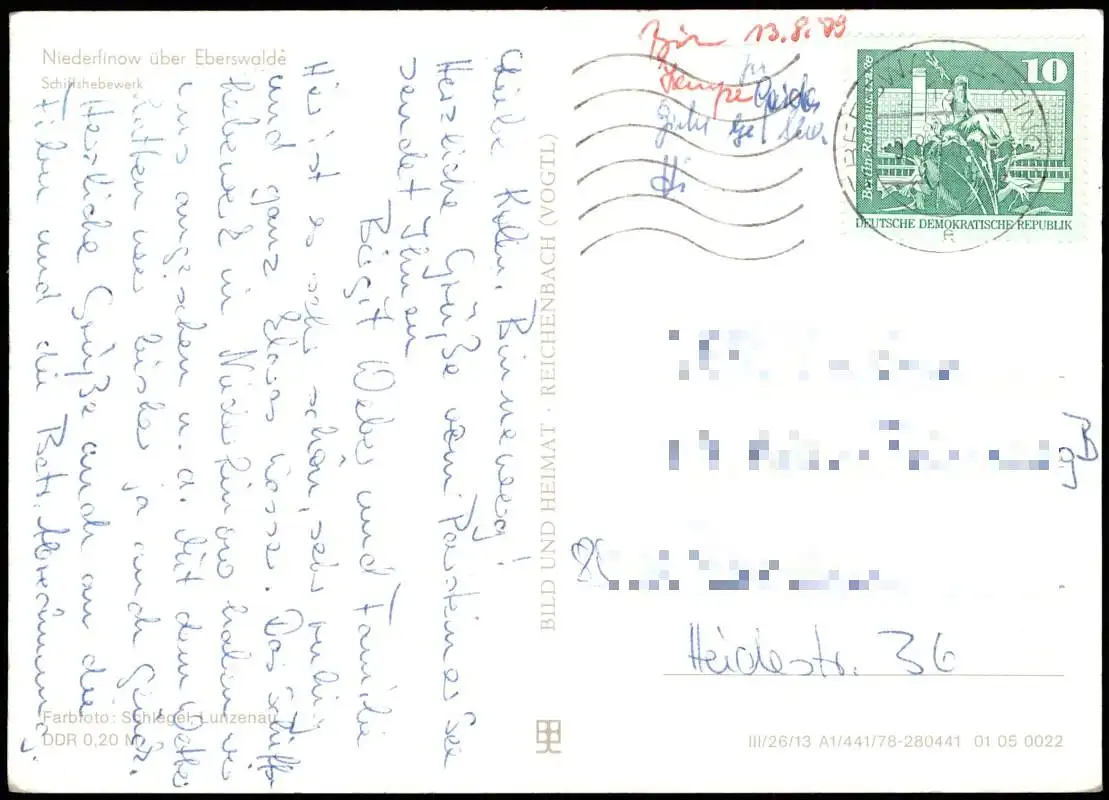 Niederfinow über Eberswalde
Schiffshebewerk
Liebe Koll. Binneweg!
Herzliche Grüße vom Parsteiner See
sendet Ihnen
Birgit Weber und Familie
Hier ist es sehr schön, sehr ruhig
und ganz etwas . Das Schiffs-
hebewerk in Niederfinow haben wir
uns angesehen u. a. Mit dem Wetter
hatten wir bisher ja auch Glück.
Herzliche Grüße auch an die
Fibu und die Betr. Abrechnung
Farbfoto: Schlegel, Lunzenau
DDR 0,20 M
BILD UND HEIMAT · REICHENBACH (VOGTL)
13.8.79
10
Berlin-Rathausstraße
DEUTSCHE DEMOKRATISCHE REPUBLIK
Heidestr. 36
III/26/13 A1/441/78-280441 01 05 0022